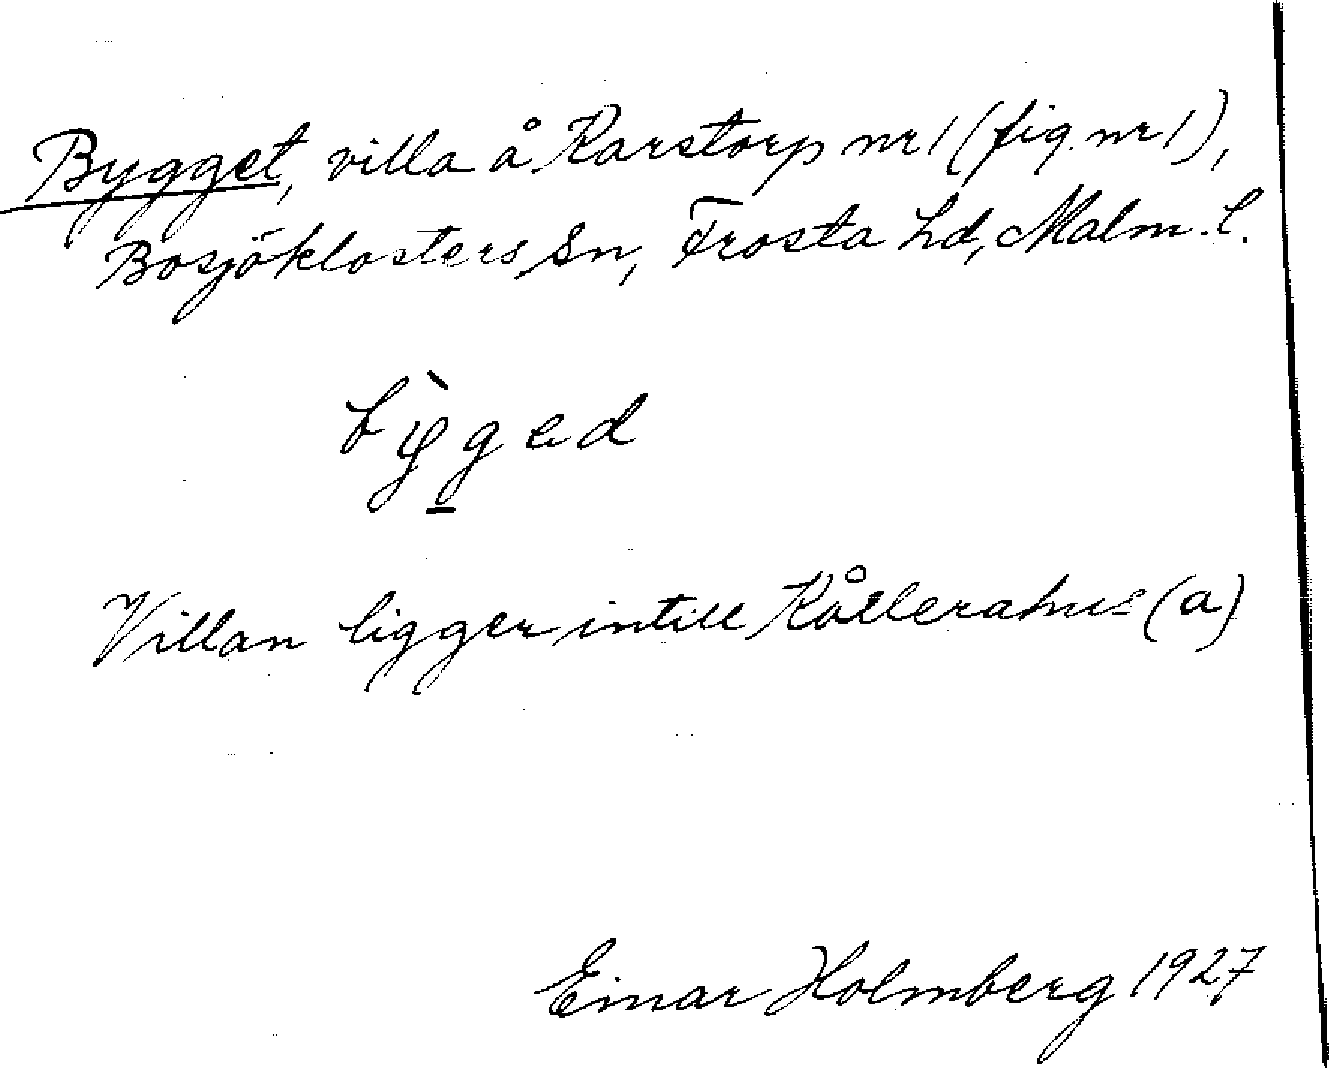 Bygget, villa å Karstorp nr 1 (fig. nr 1),
Bosjöklosters Sn, Frosta hd, Malm. l.
bỳged
Villan ligger intill Kållerahus (a)
Einar Holmberg 1927